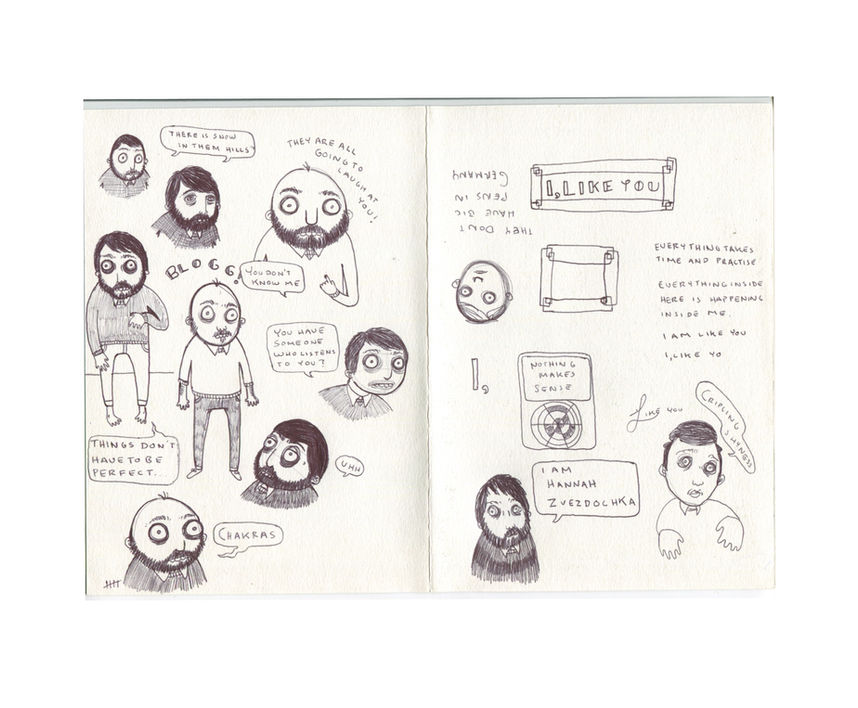 THERE IS SNOW
IN THEM HILLS
THEY ARE ALL
GOING TO
LAUGH AT
YOU!
BLOGG
YOU DON'T
KNOW ME
YOU HAVE
SOMEONE
WHO LISTENS
TO YOU?
THINGS DON'T
HAVE TO BE
PERFECT...
UHH
CHAKRAS
THEY DON'T
HAVE BIC
PENS IN
GERMANY
I, LIKE YOU
EVERYTHING TAKES
TIME AND PRACTISE
EVERYTHING INSIDE
HERE IS HAPPENING
INSIDE ME.
I AM LIKE YOU
I, LIKE YO
I,
NOTHING
MAKES
SENSE
LIKE YOU
CRIPLING
SHYNESS
I AM
HANNAH
ZVEZDOCHKA